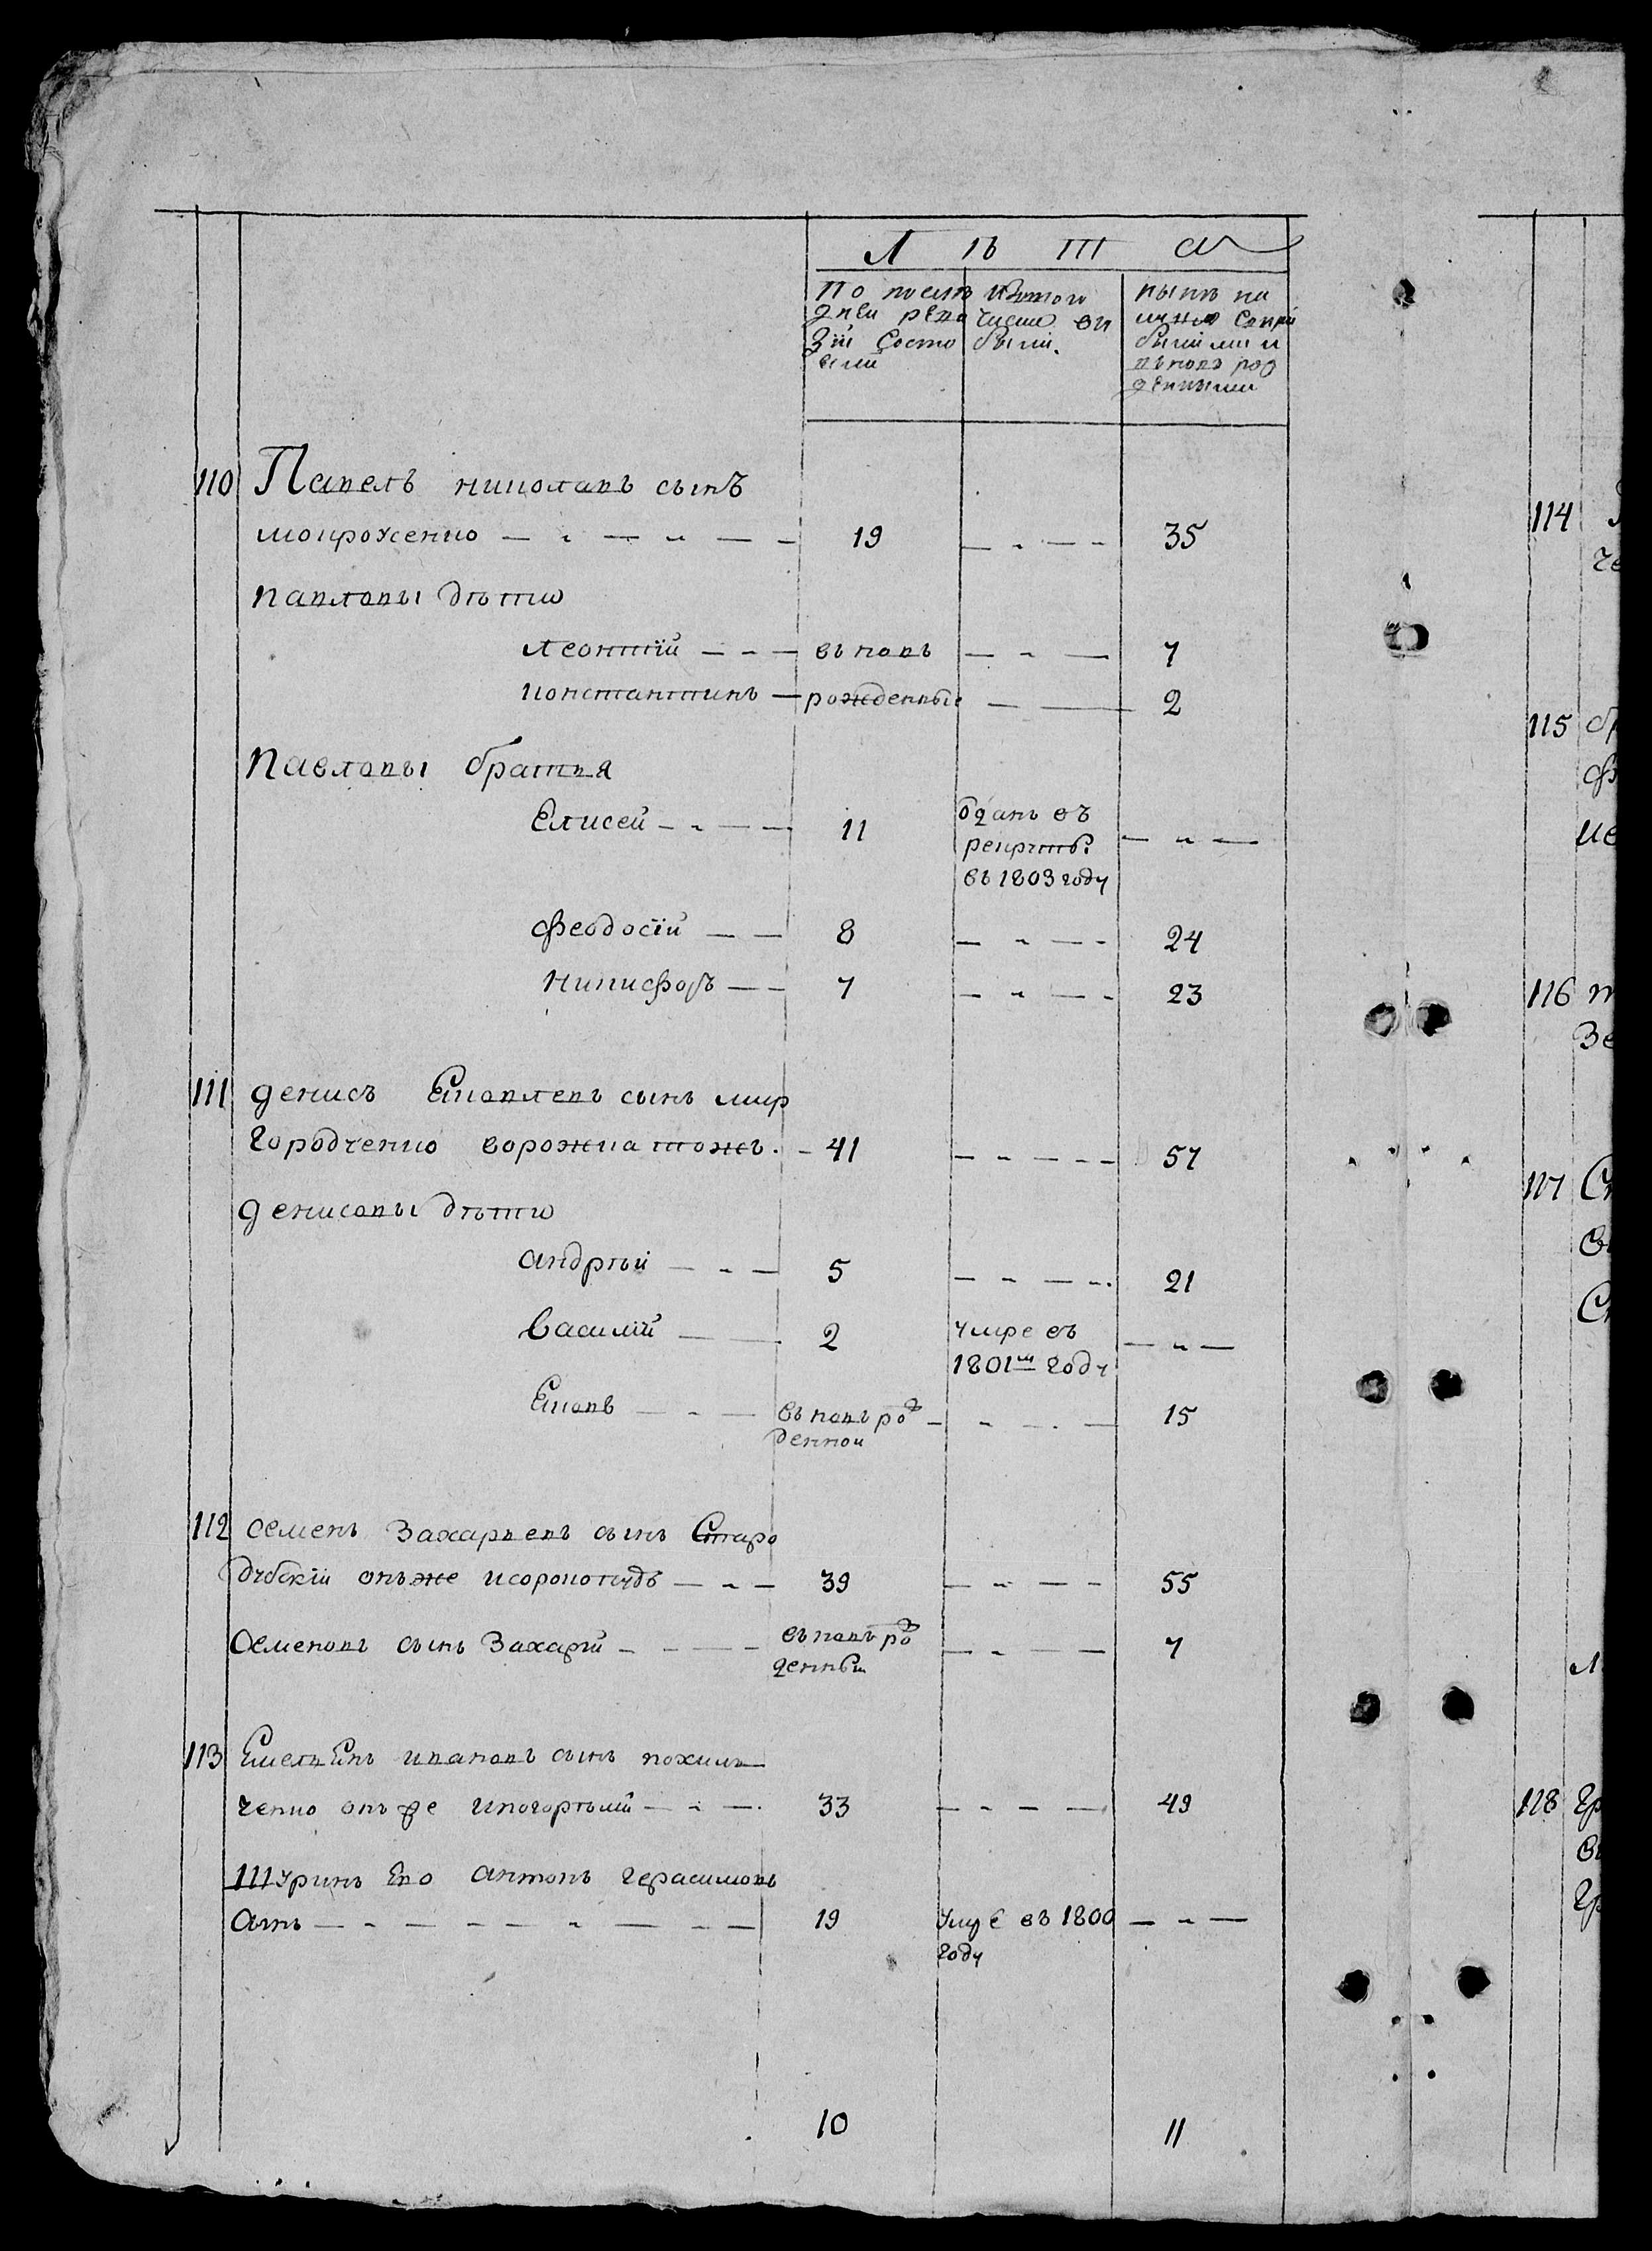 Л ѣ т а
По послѣ
дней реви
зіи состо
яли
Изтого
числа вы
были.
нынѣ на
лицо сприбылыми и
вновь рож
денными
110 Павелъ николаевъ сынъ
мокроженко 19 35
павловы дѣти
леонтій вьновь 7
константинъ рожденные 2
Павловы братья
Елисей 11
одань въ
рекруты
въ 1803 году
феодосій 8 24
никифоръ 7 23
111 денисъ Яковлевъ сынъ мир
городченко ворожка тожъ. 41 57
денисовы дѣти
андрѣй 5 21
Василій 2
умре въ
1801м году
Яковъ 15
вьновь рож
денной
112 семенъ Захарьевъ сынъ Старо
дубскій онъже исоропотудъ 39 55
Семеновъ сынъ Захарій 7
вьновь рож
денный
113 Емельянъ ивановъ сынъ похиль
ченко онъ же
33 49
Шуринъ Его антонъ герасимовъ
сынъ 19 умре въ 1800
году
10 11
114
че
115
116
Зе
117
118